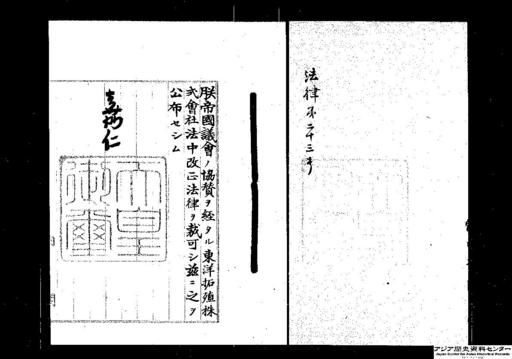 法律第二十三号
朕帝國議會ノ協贊ヲ経タル東洋拓殖株
式會社法中改正法律ヲ裁可シ茲ニ之ヲ
公布セシム
嘉仁
天皇
御璽
アジア歴史資料センター
Japan Center for Asian Historical Records